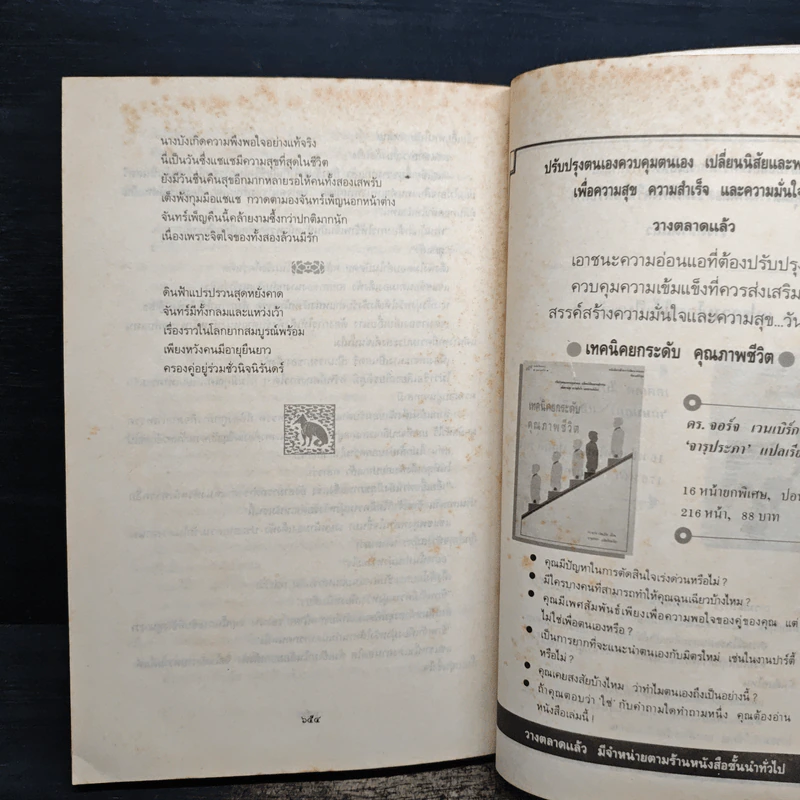 นางบังเกิดความพึงพอใจอย่างแท้จริง
นี่เป็นวันซึ่งแชแชมีความสุขที่สุดในชีวิต
ยังมีวันชื่นคืนสุขอีกมากหลายรอให้คนทั้งสองเสพรับ
เต็งพ้งกุมมือแชแช กวาดตามองจันทร์เพ็ญนอกหน้าต่าง
จันทร์เพ็ญคืนนี้คล้ายงามซึ้งกว่าปกติมากนัก
เนื่องเพราะจิตใจของทั้งสองล้วนมีรัก
ดินฟ้าแปรปรวนสุดหยั่งคาด
จันทร์มีทั้งกลมและแหว่งเว้า
เรื่องราวในโลกยากสมบูรณ์พร้อม
เพียงหวังคนมีอายุยืนยาว
ครองคู่อยู่ร่วมชั่วนิจนิรันดร์
๖๕๔
ปรับปรุงตนเองควบคุมตนเอง เปลี่ยนนิสัยและ
เพื่อความสุข ความสำเร็จ และความมั่นใจ
วางตลาดแล้ว
เอาชนะความอ่อนแอที่ต้องปรับปรุง
ควบคุมความเข้มแข็งที่ควรส่งเสริม
สรรค์สร้างความมั่นใจและความสุข...วัน
เทคนิคยกระดับ คุณภาพชีวิต
เทคนิคยกระดับ
คุณภาพชีวิต
ดร. จอร์จ เวนเบิร์ก
'จารุประภา' แปลเรีย
16 หน้ายกพิเศษ, ปอน
216 หน้า, 88 บาท
คุณมีปัญหาในการตัดสินใจเร่งด่วนหรือไม่?
มีใครบางคนที่สามารถทำให้คุณฉุนเฉียวบ้างไหม?
คุณมีเพศสัมพันธ์เพียงเพื่อความพอใจของคู่ของคุณ แต่
ไม่ใช่เพื่อตนเองหรือ?
เป็นการยากที่จะแนะนำตนเองกับมิตรใหม่ เช่นในงานปาร์ตี้
หรือไม่?
คุณเคยสงสัยบ้างไหม ว่าทำไมตนเองถึงเป็นอย่างนี้?
ถ้าคุณตอบว่า 'ใช่' กับคำถามใดคำถามหนึ่ง คุณต้องอ่าน
หนังสือเล่มนี้!
วางตลาดแล้ว มีจำหน่ายตามร้านหนังสือชั้นนำทั่วไป